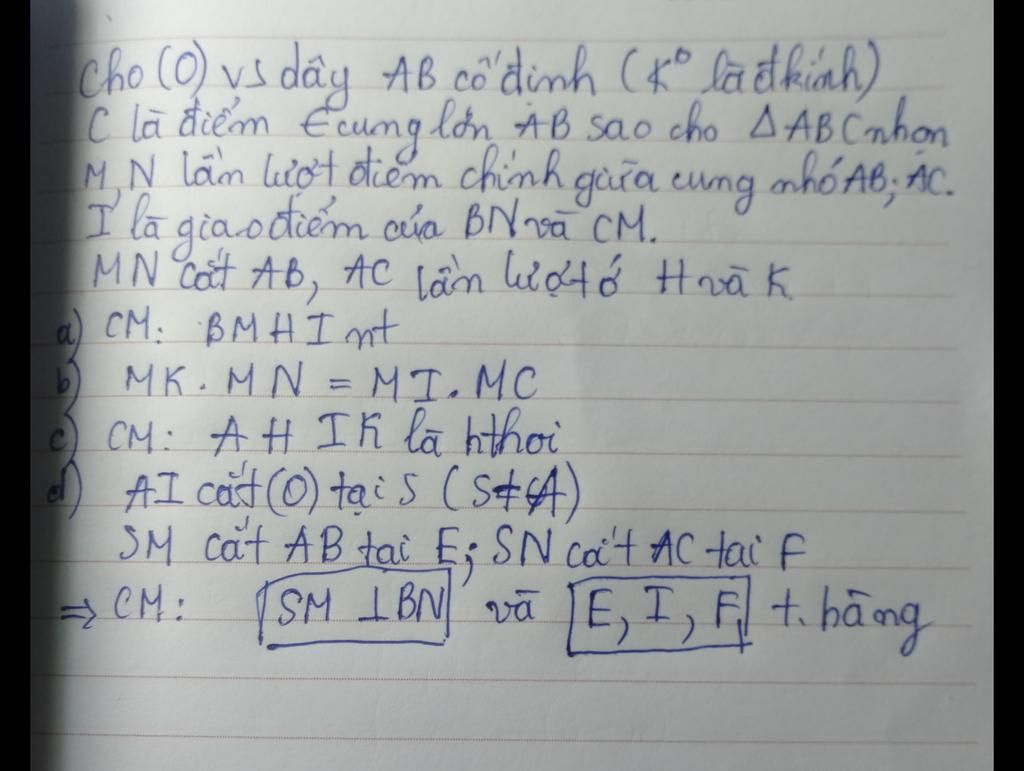 Cho (O) vs dây AB cố định (K° là đkính)
C là điểm ∈ cung lớn AB sao cho ∆ ABC nhọn
M, N lần lượt điểm chính giữa cung nhỏ AB; AC.
I là giao điểm của BN và CM.
MN cắt AB, AC lần lượt ở H và K
a) CM: BMHI nt
b) MK. MN = MI. MC
c) CM: A H I K là hthoi
d) AI cắt (O) tại S (S≠A)
SM cắt AB tại E; SN cắt AC tại F
⇒ CM: SM ⊥ BN và E, I, F, t. hàng